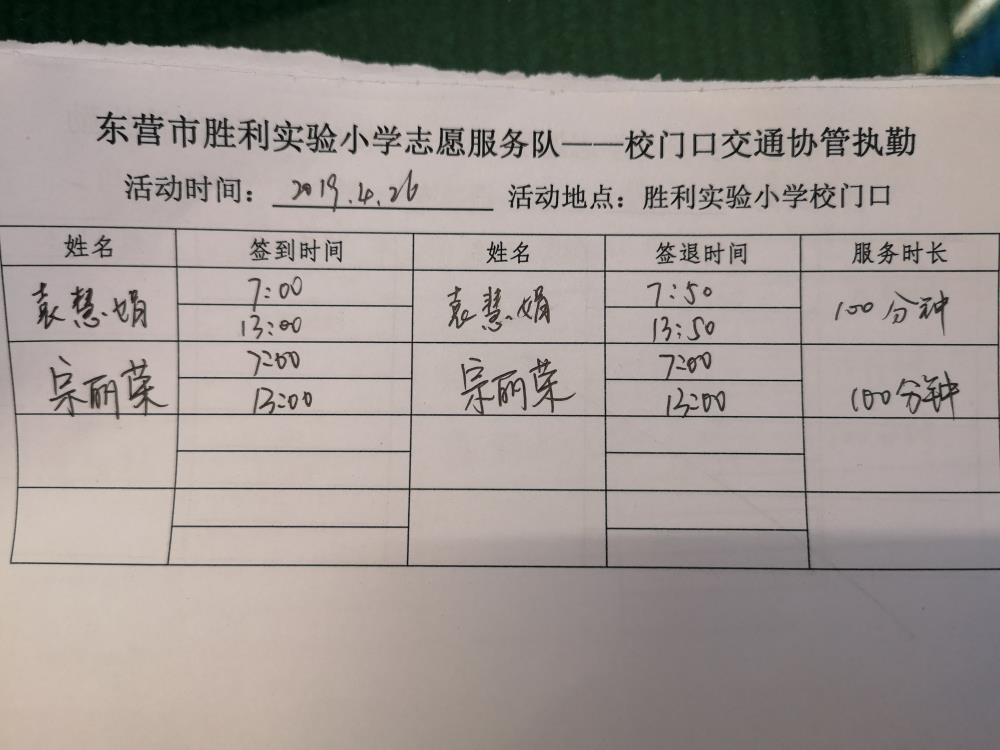 东营市胜利实验小学志愿服务队——校门口交通协管执勤
活动时间：2019.4.26 活动地点：胜利实验小学校门口
姓名 签到时间 姓名 签退时间 服务时长
袁慧娟 7:00 袁慧娟 7:50 100分钟
13:00 13:50
宗丽荣 7:00 宗丽荣 7:00 100分钟
13:00 13:00